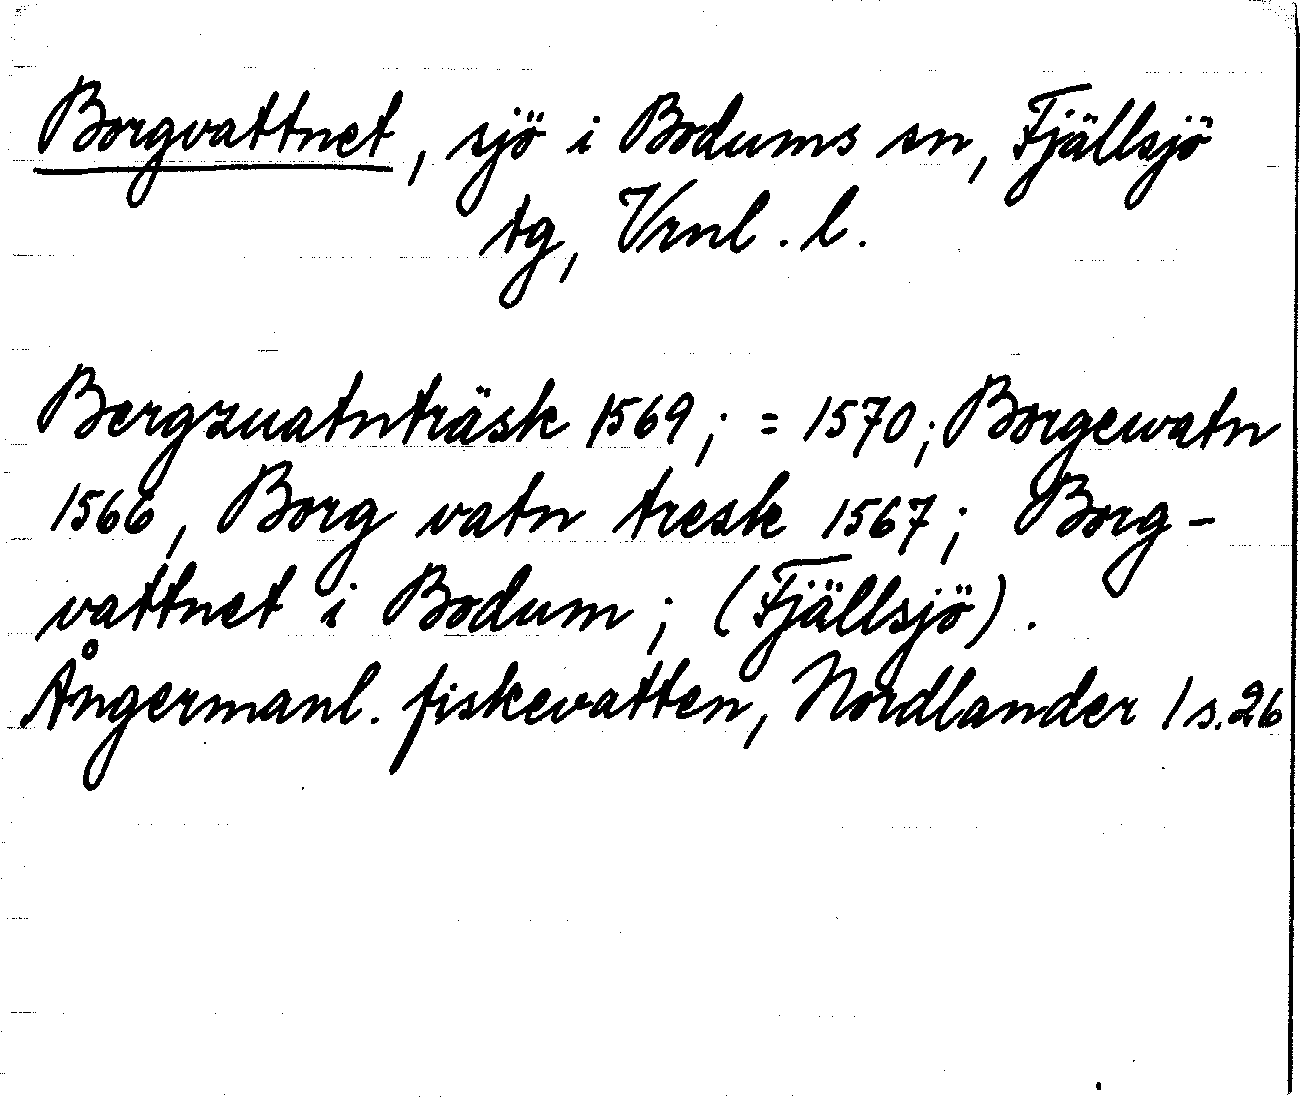 Borgvattnet, sjö i Bodums sn, Fjällsjö
tg, Vrnl. l.
Bergzuatnträsk 1569; = 1570; Borgewatn
1566, Borg vatn tresk 1567; Borg-
vattnet i Bodum; (Fjällsjö).
Ångermanl. fiskevatten, Nordlander 1 s. 26